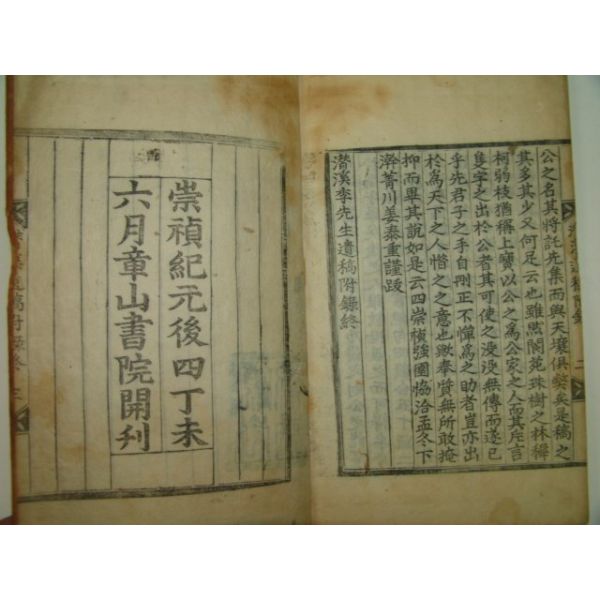 公之名其將託先集而與天壤俱獘矣是稿之
其多其少又何足云也雖然閬苑珠樹之林樨
柯弱枝猶稱上寶以公之爲公家之人而其片言
隻字之出於公者其可使之沒沒無傳而遂已
乎先君子之手自刪正不憚爲之助者豈亦出
於爲天下之人惜之之意也歟奉質無所敢掩
抑而畢其說如是云四崇禎強圉協洽孟冬下
澣菁川姜泰重謹跋
潛溪李先生遺稿附錄終
二
崇禎紀元後四丁未
六月章山書院開刋
遺稿附錄終 三